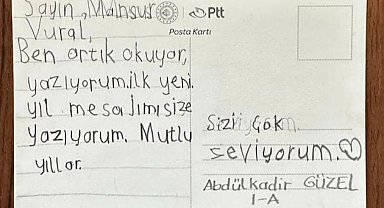 Sayın, Mansur
Vural,
Ptt
Posta Kartı
Ben artık okuyor,
yazıyorum.ilk yeni
yıl mesajımı size
Yazıyorum. Mutlu
yıllar.
Sizi Çok
seviyorum.
Abdülkadir GÜZEL
1-A